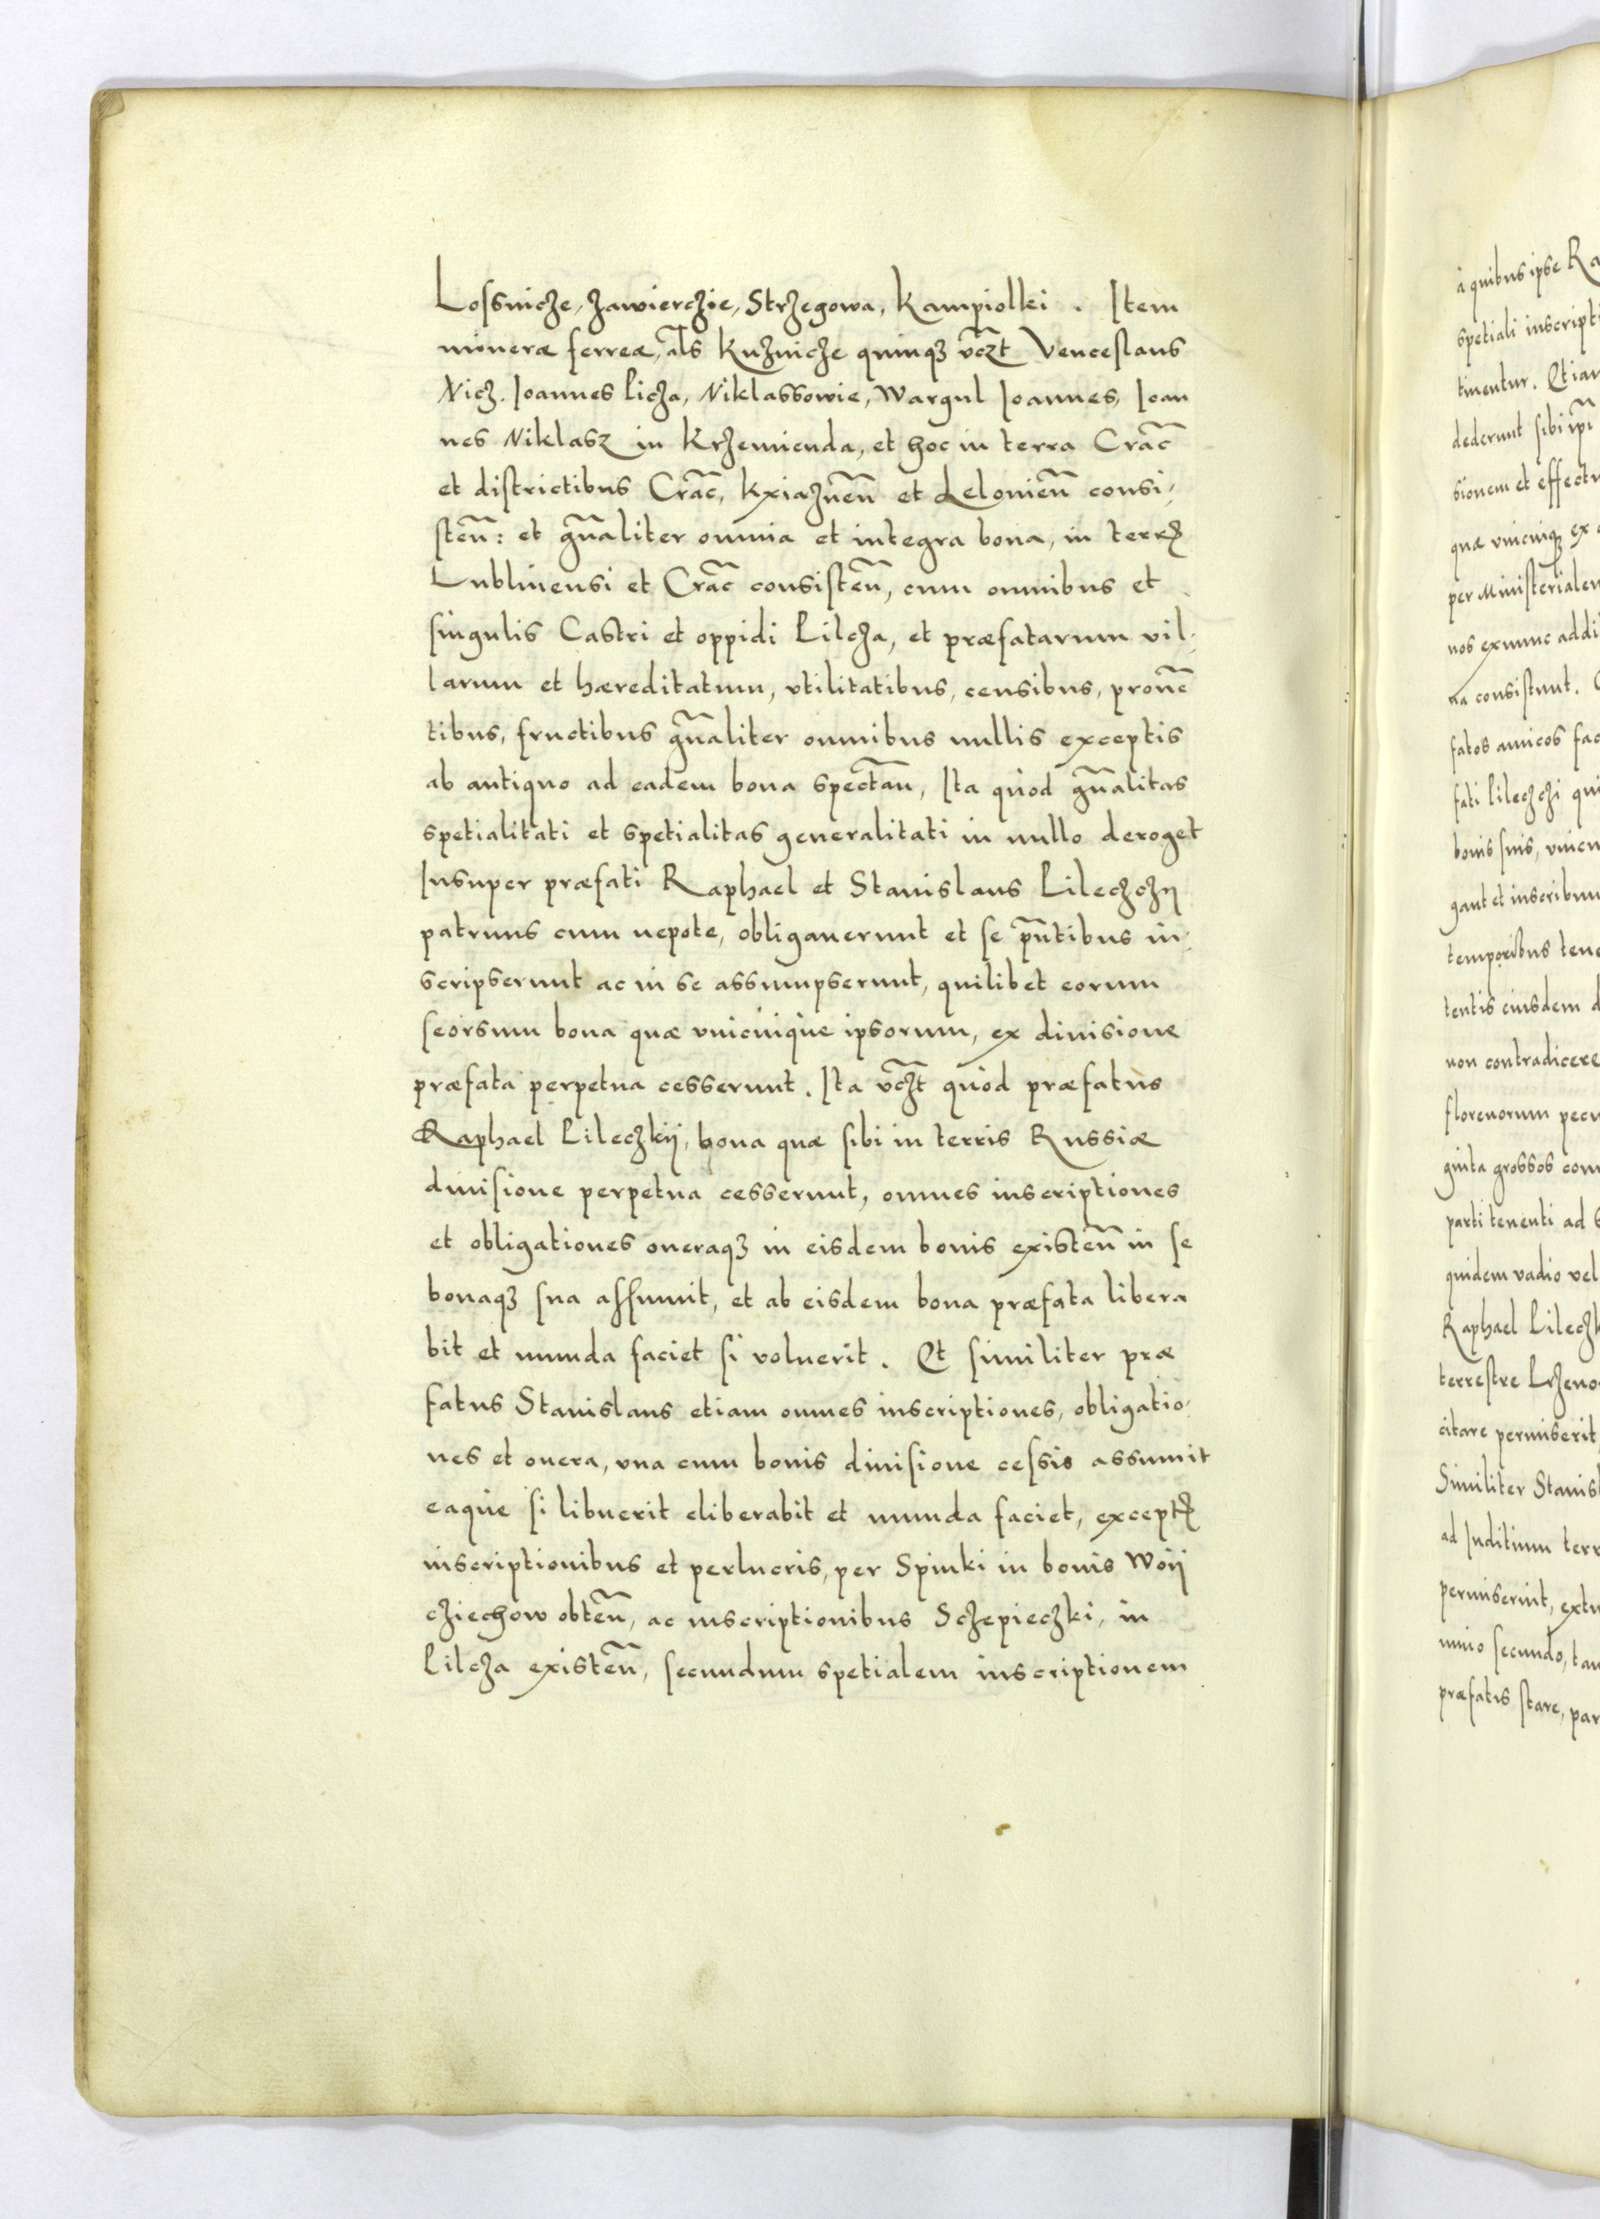 Lossnicze, Zawierczie, Strzegowa, Kampiolki. Item
mineræ ferreæ, al̃s Kuznicze quinqꝫ vcz̃t Venceslaus
Nicz. Joannes Licza, Niklassowie, Wargul Joannes, Joan
nes Niklasz in Krzemienda, et hoc in terra Crac̃
et districtibus Crac̃, Kxiaznen̄ et Lelouien̄ consi-
sten̄: et gn̄aliter omnia et integra bona, in terrꝭ
Lublinensi et Crac̃ consisten̄, cum omnibus et
singulis Castri et oppidi Pilcza, et præfatarum vil-
larum et hæreditatum, vtilitatibus, censibus, prouẽ
tibus, fructibus gn̄aliter omnibus nullis exceptis
ab antiquo ad eadem bona spectan̄, Ita quod gn̄alitas
spetialitati et spetialitas generalitati in nullo deroget
Insuper præfati Raphael et Stanislaus Pileczczÿ
patruus cum nepote, obligauerunt et se pn̄tibus in-
scripserunt ac in se assumpserunt, quilibet eorum
seorsum bona quæ vnicuique ipsorum, ex diuisione
præfata perpetua cesserunt. Ita vcz̃t quod præfatus
Raphael Pileczkÿ, bona quæ sibi in terris Russiæ
diuisione perpetua cesserunt, omnes inscriptiones
et obligationes oneraqꝫ in eisdem bonis existen̄ in se
bonaqꝫ sua assumit, et ab eisdem bona præfata libera
bit et munda faciet si voluerit. Et similiter præ
fatus Stanislaus etiam omnes inscriptiones, obligatio-
nes et onera, vna cum bonis diuisione cessis assumit
eaque si libuerit eliberabit et munda faciet, exceptꝭ
inscriptionibus et perlucris, per Spinki in bonis Woÿ
cziechow obten̄, ac inscriptionibus Sczepieczki, in
Pilcza existen̄, secundum spetialem inscriptionem
à quibus ipse Ra
spetiali inscripti
tinentur. Etiam
dederunt sibi ip̄i
sionem et effectu
quæ vnicuiqꝫ ex
per Ministerialem
nos exnunc addi
na consistunt.
fatos amicos fac
fati Pileczczi qui
bonis suis, vnicu
gant et inscribun
temporibus tene
tentis eiusdem d
non contradicere
florenorum pecu
ginta grossos com
parti tenenti ad s
quidem vadio vel
Raphael Pileczk
terrestre Lrzeno
citare permiserit,
Similiter Stanisl
ad Juditium terr
permiserint, extu
mino secundo, tan
præfatis stare, par